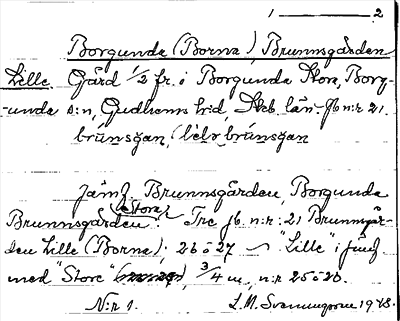 1 ——— 2
Borgunda (Borna), Brunnsgården
Lille. Gård 1/2 fr. i Borgunda Stora, Borg-
-unda s:n, Gudhems h:d, Skb. län. Jb n:r 21.
brúnsgan,
Jämf. Brunnsgården, Borgunda
Stora
Brunnsgården. Tre jb. n:r: 21 Brunnsgår-
den Lille (Borna); 26 o 27 "Lille" i jämf
med "Store" 3/4 m., n:r 25 o 26.
N:r 1. L. M. Svenungsson 1948.